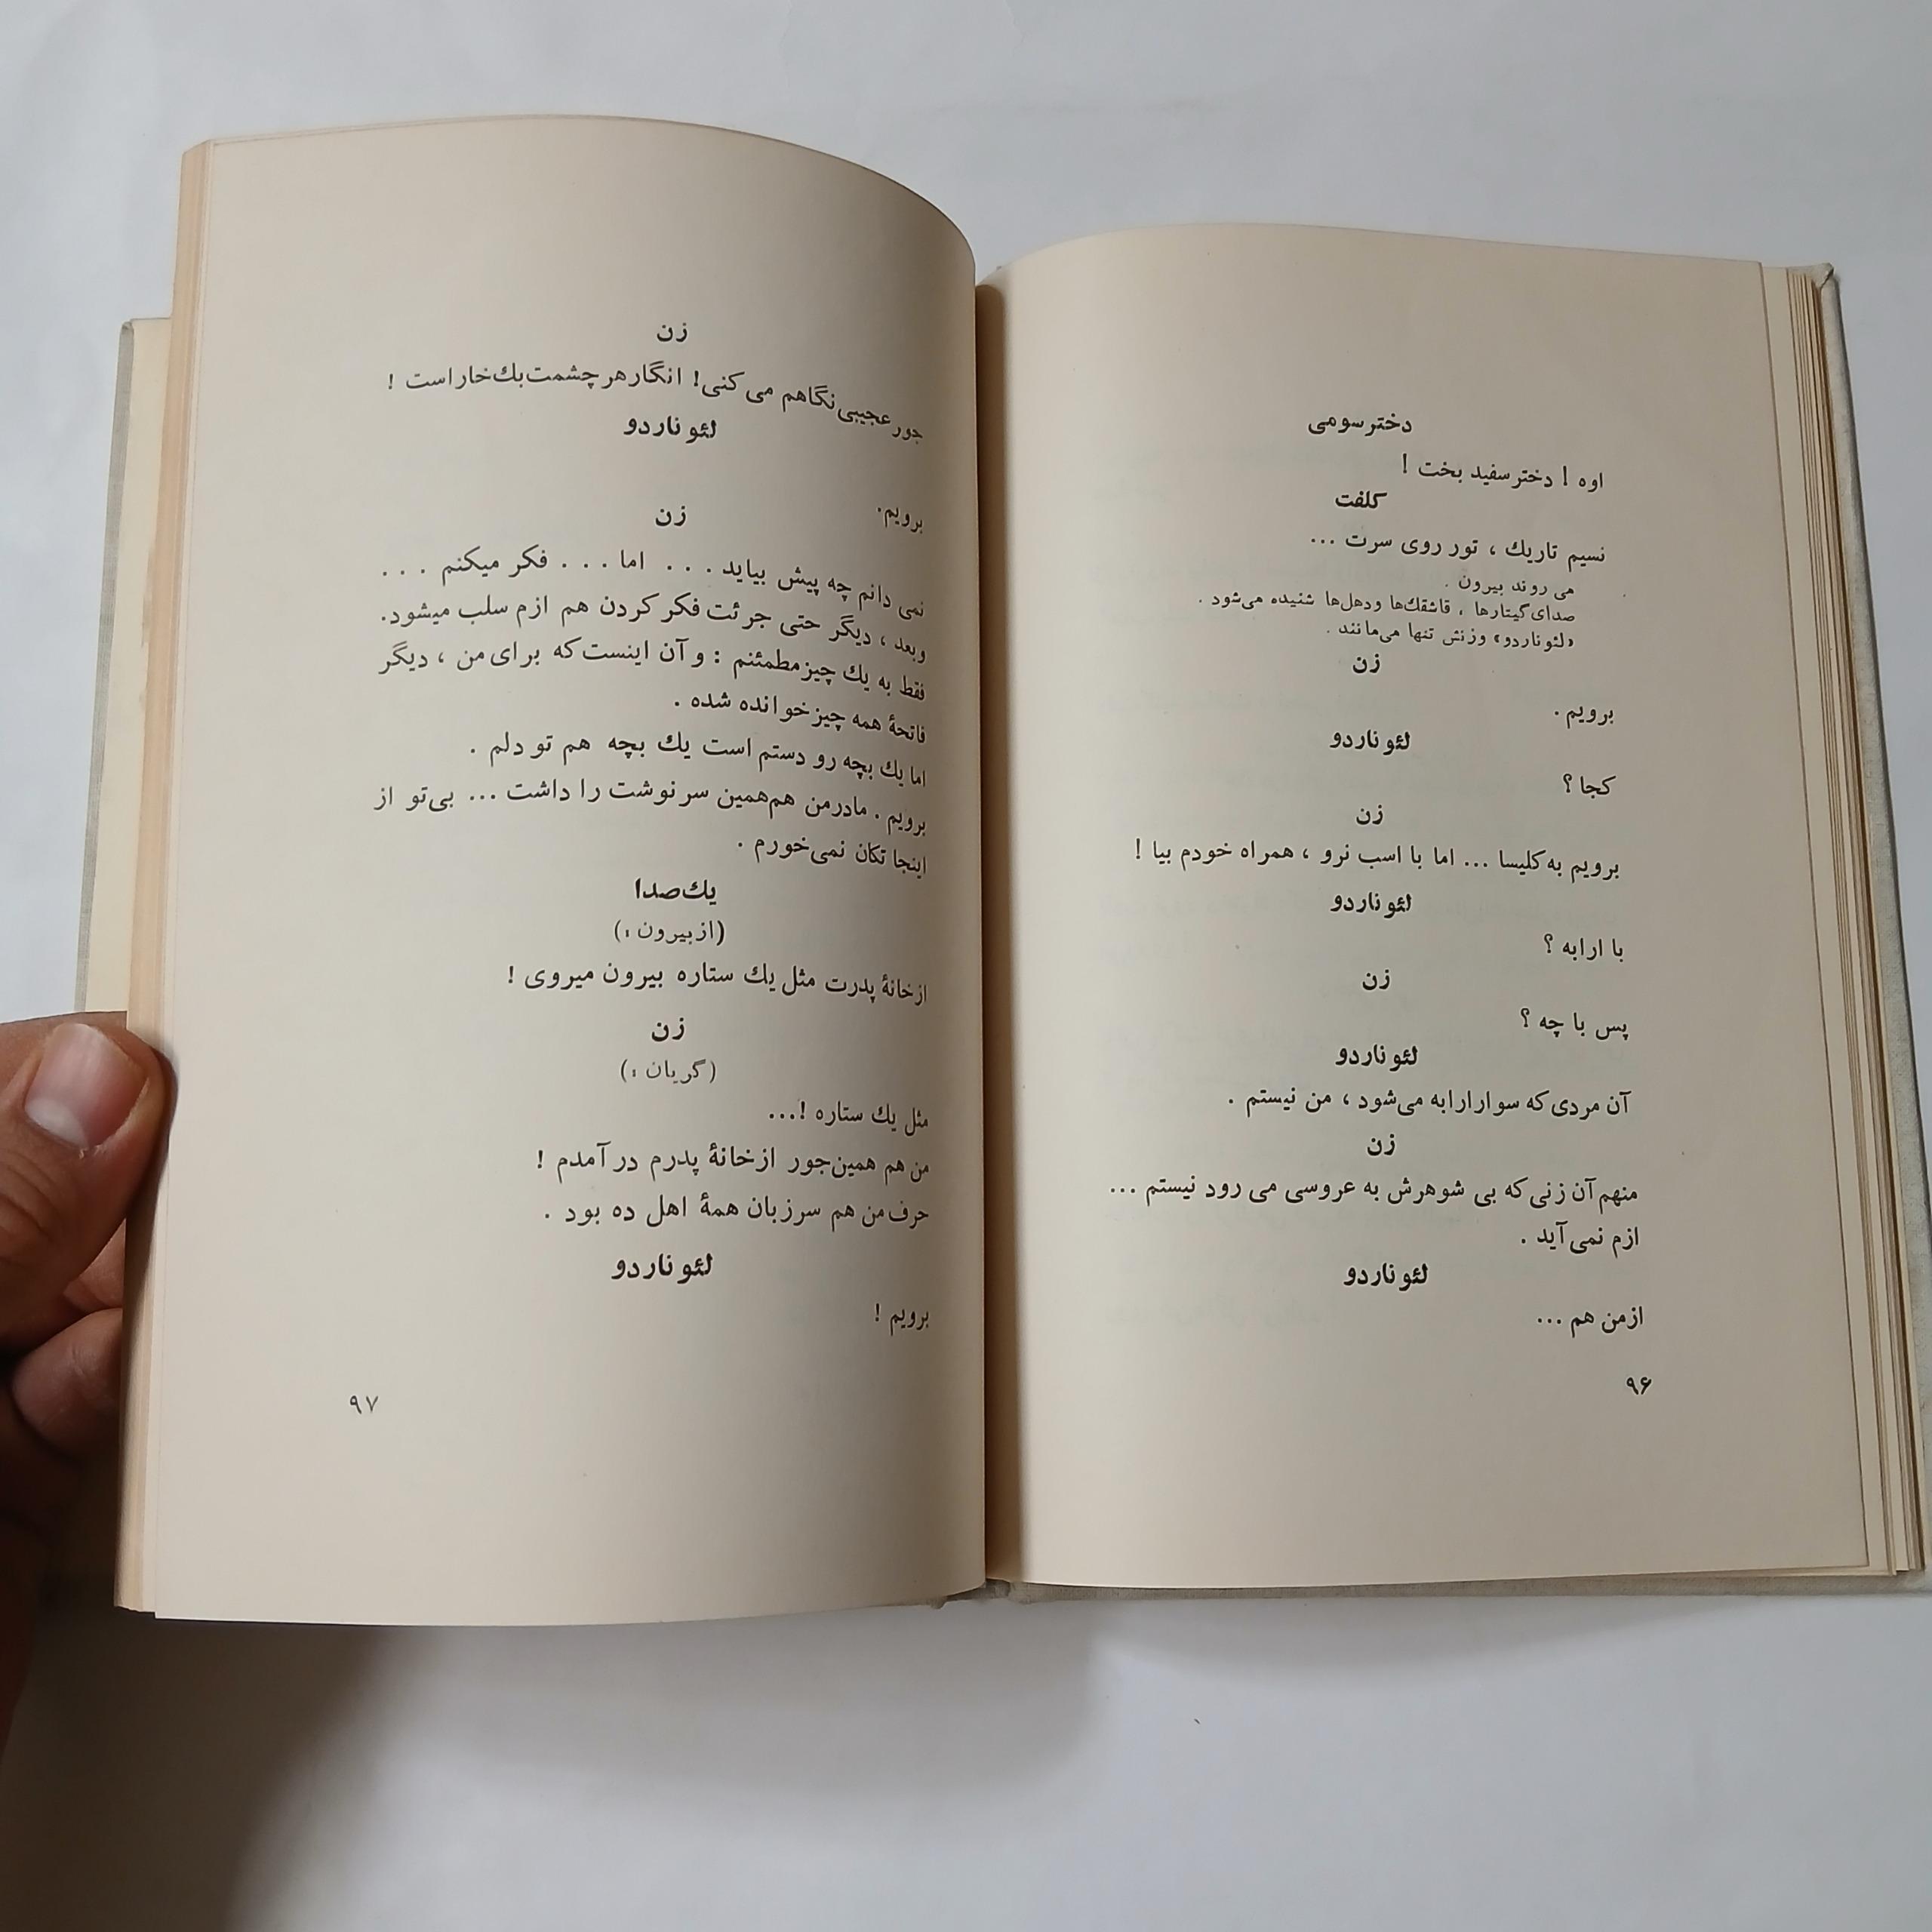 دختر سومی
اوه ! دختر سفید بخت !
کلفت
نسیم تاریك ، تور روی سرت ...
می روند بیرون .
صدای گیتارها ، قاشقك‌ها ودهل‌ها شنیده می‌شود .
«لئوناردو» وزنش تنها می‌مانند .
زن
برویم .
لئوناردو
کجا ؟
زن
برویم به کلیسا ... اما با اسب نرو ، همراه خودم بیا !
لئوناردو
با ارابه ؟
زن
پس با چه ؟
لئوناردو
آن مردی که سوار ارابه می‌شود ، من نیستم .
زن
منهم آن زنی که بی شوهرش به عروسی می رود نیستم ...
ازم نمی‌آید .
لئوناردو
ازمن هم ...
۹۶
زن
جور عجیبی نگاهم می کنی! انگار هر چشمت یك خار است !
لئوناردو
برویم.
زن
نمی دانم چه پیش بیاید . . . اما . . . فکر میکنم . . .
وبعد ، دیگر حتی جرئت فکر کردن هم ازم سلب میشود.
فقط به یك چیز مطمئنم : و آن اینست که برای من ، دیگر
فاتحهٔ همه چیز خوانده شده .
اما یك بچه رو دستم است یك بچه هم تو دلم .
برویم . مادر من هم همین سرنوشت را داشت ... بی‌تو از
اینجا تکان نمی‌خورم .
یك صدا
(از بیرون :)
از خانهٔ پدرت مثل یك ستاره بیرون میروی !
زن
(گریان :)
مثل یك ستاره !...
من هم همین‌جور از خانهٔ پدرم در آمدم !
حرف من هم سر زبان همهٔ اهل ده بود .
لئوناردو
برویم !
۹۷